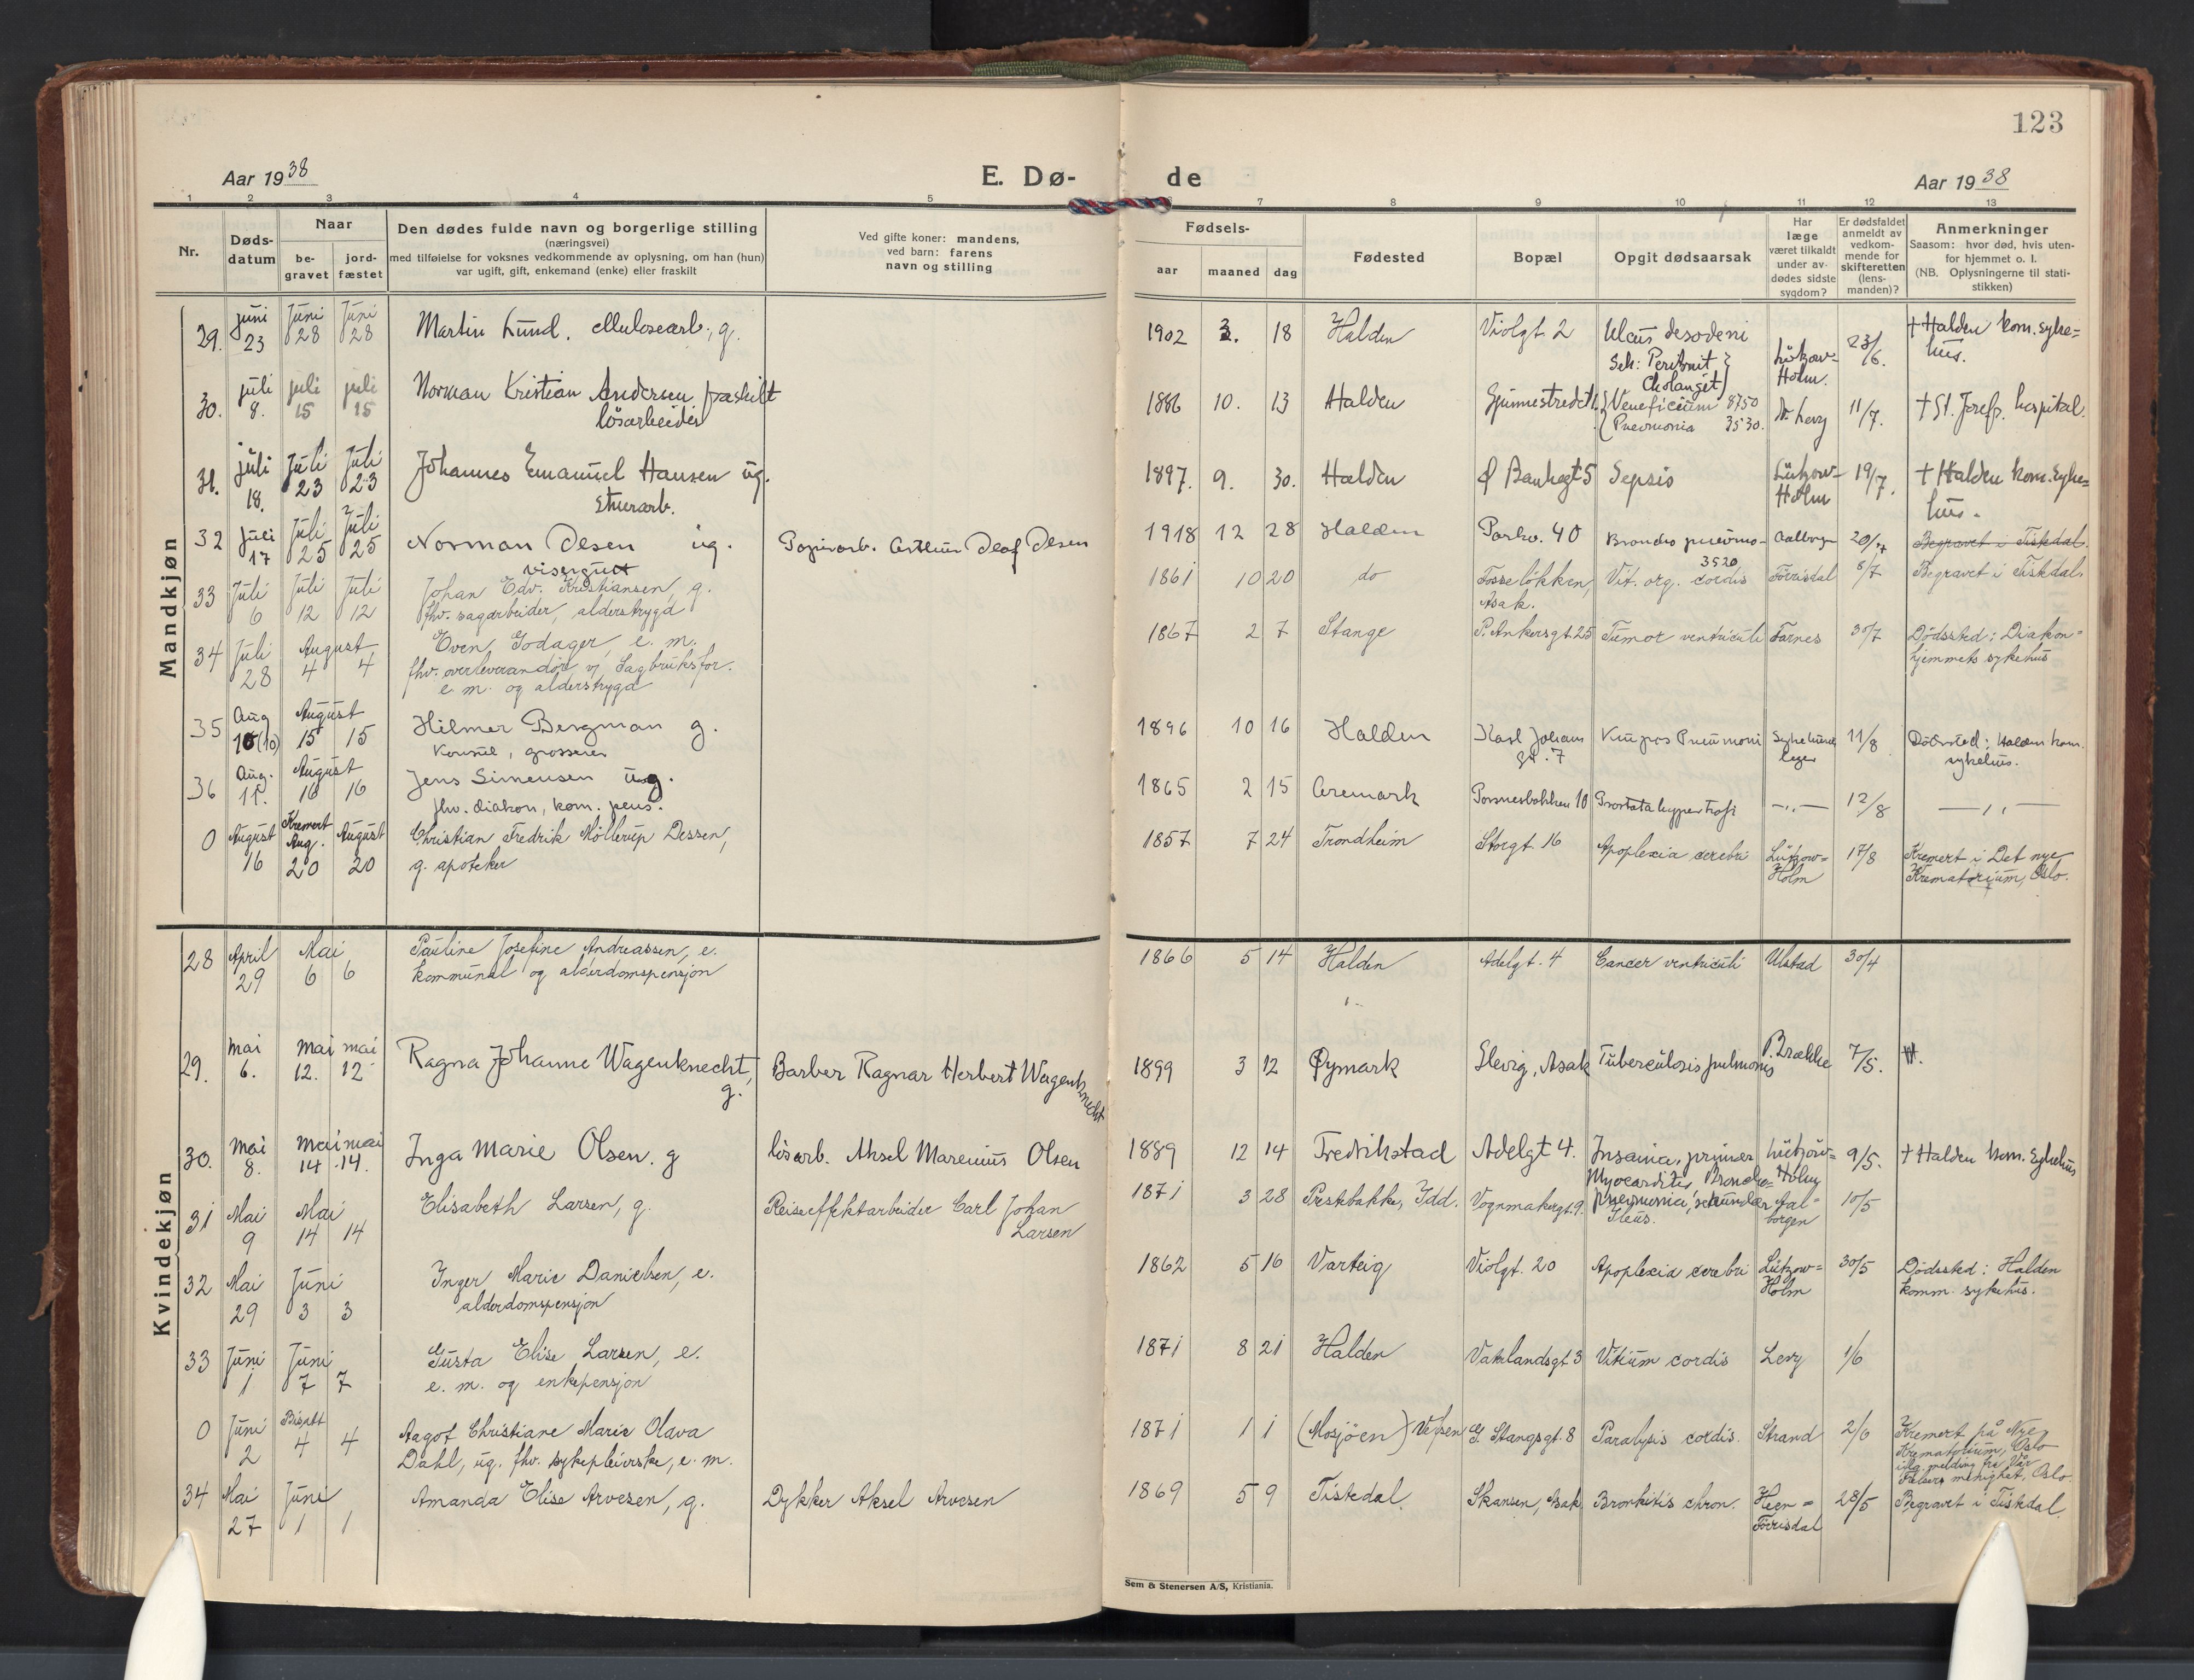 123
Aar 1938
E. Dø-
de
Aar 1938
1 2 3 4 5 7 8 9 10 11 12 13
Nr.
Døds-
datum
Naar
be-
gravet
jord-
fæstet
Den dødes fulde navn og borgerlige stilling
(næringsvei)
med tilføielse for voksnes vedkommende av oplysning, om han (hun)
var ugift, gift, enkemand (enke) eller fraskilt
Ved gifte koner: mandens,
ved barn: farens
navn og stilling
Fødsels-
aar maaned dag
Fødested
Bopæl
Opgit dødsaarsak
Har
læge
været tilkaldt
under av-
dødes sidste
sygdom?
Er dødsfaldet
anmeldt av
vedkom-
mende for
skifteretten
(lens-
manden)?
Anmerkninger
Saasom: hvor død, hvis uten-
for hjemmet o. l.
(NB. Oplysningerne til stati-
stikken)
Mandkjøn
29. juni 23 Juni 28 Juni 28 Martin Lund. cellulosearb., g. 1902 3. 18 Halden Violgt 2 Ulcus
Sek: Peritonit
Cholangit Lützow-
Holm. 23/6. † Halden kom. syke=
hus.
30. juli 8. juli 15 juli 15 Norman Kristian Andersen fraskilt
løsarbeider 1886 10. 13 Halden Veneficium 8750
Pneumonia 3530. Dr. Levy 11/7. † St. Josefs. hospital.
31. juli 18. Juli 23 Juli 23 Johannes Emanuel Hansen ug.
1897. 9. 30. Halden Bankegt 5 Sepsis Lützow-
Holm 19/7. † Halden kom. syke=
hus.
32 Juli 17 Juli 25 Juli 25 Norman Olsen ug.
visergutt Papirarb. Arthur Olaf Olsen 1918 12 28 Halden Parkv. 40 Broncho pneumo- 20/7 Begravet i Tistedal.
33 Juli 6 Juli 12 Juli 12 Johan Edv. Kristiansen, g.
fhv. sagarbeider, alderstrygd 1861 10 20 do Fosseløkken,
Asak. 3520
Vit. org. cordis Förrisdal 8/7 Begravet i Tistedal.
34 Juli 28 August 4 4 Even Godager, e. m.
fhv. overleverandör v/ Sagbruksfor.
e. m. og alderstrygd 1867 2 7 Stange P. Ankersgt. 25 Tumor ventriculi Farnes 30/7 Dödssted: Diakon=
hjemmets sykehus
35 Aug 10 (10) August 15 15 Hilmer Bergman g.
Konsul, grosserer 1896 10 16 Halden Karl Johans
gt. 7 Krupøs Pneumoni Sykehuset
11/8 Dödssted: Halden kom.
sykehus.
36 Aug. 11. August 16 16 Jens Simensen ug.
fhv. diakon, kom. pens. 1865 2 15 Aremark Porsnesbakken 10 Prostatahypertrofi —,,— 12/8 —,,—
0 August 16 Kremert Aug. 20 August 20 Christian Fredrik Möllerup Dessen,
g. apoteker 1857 7 24 Trondheim Storgt. 16 Apoplexia cerebri Lützow=
Holm 17/8 Kremert i Det nye
Krematorium, Oslo.
Kvindekjøn
28 April 29 Mai 6 6 Pauline Josefine Andreassen, e.
kommunal og alderdomspensjon 1866 5 14 Halden Adelgt. 4 Cancer ventriculi Ulstad 30/4
29. mai 6. mai 12. mai 12 Ragna Johanne Wagenknecht,
g. Barber Ragnar Herbert Wagenknecht 1899 3 12 Øymark Elevig, Asak Tuberculosis pulmonis P. Brække 7/5.
30. mai 8. mai 14 mai 14. Inga Marie Olsen. g løsarb. Aksel Marenius Olsen 1889 12 14 Fredrikstad Adelgt 4. Insania, primær
Myocarditis, Broncho=
pneumonia, sekundær Lützow=
Holm 9/5. † Halden kom. sykehus
31 Mai 9 Mai 14 14 Elisabeth Larsen, g. Reiseeffektarbeider Carl Johan
Larsen 1871 3 28 Prestebakke, Idd. Vognmakergt. 9. Ileus. Aal=
borgen 10/5
32 Mai 29 Juni 3 3 Inger Marie Danielsen, e.
alderdomspensjon 1862 5 16 Varteig Violgt. 20 Apoplexia cerebri Lützow=
Holm 30/5 Dödssted: Halden
komm. sykehus.
33 Juni 1 Juni 7 7 Gusta Elise Larsen, e.
e. m. og enkepensjon 1871 8 21 Halden Vaterlandsgt. 3 Vitium cordis Levy 1/6
0 Juni 2 Bisatt 4 4 Aagot Christiane Marie Olava
Dahl, ug. fhv. sykepleierske, e. m. 1871 1 1 (Mosjöen) Vefsen G. Stangsgt. 8 Paralysis cordis. Strand 2/6 Kremert på Nye
Krematorium, Oslo
iflg. melding fra Vår
Frelsers menighet, Oslo
34 Mai 27 Juni 1 1 Amanda Elise Arvesen, g. Dykker Aksel Arvesen 1869 5 9 Tistedal. Skansen, Asak Bronkitis chron. Heen=
Förrisdal 28/5 Begravet i Tistedal.
Sem & Stenersen A/S, Kristiania.